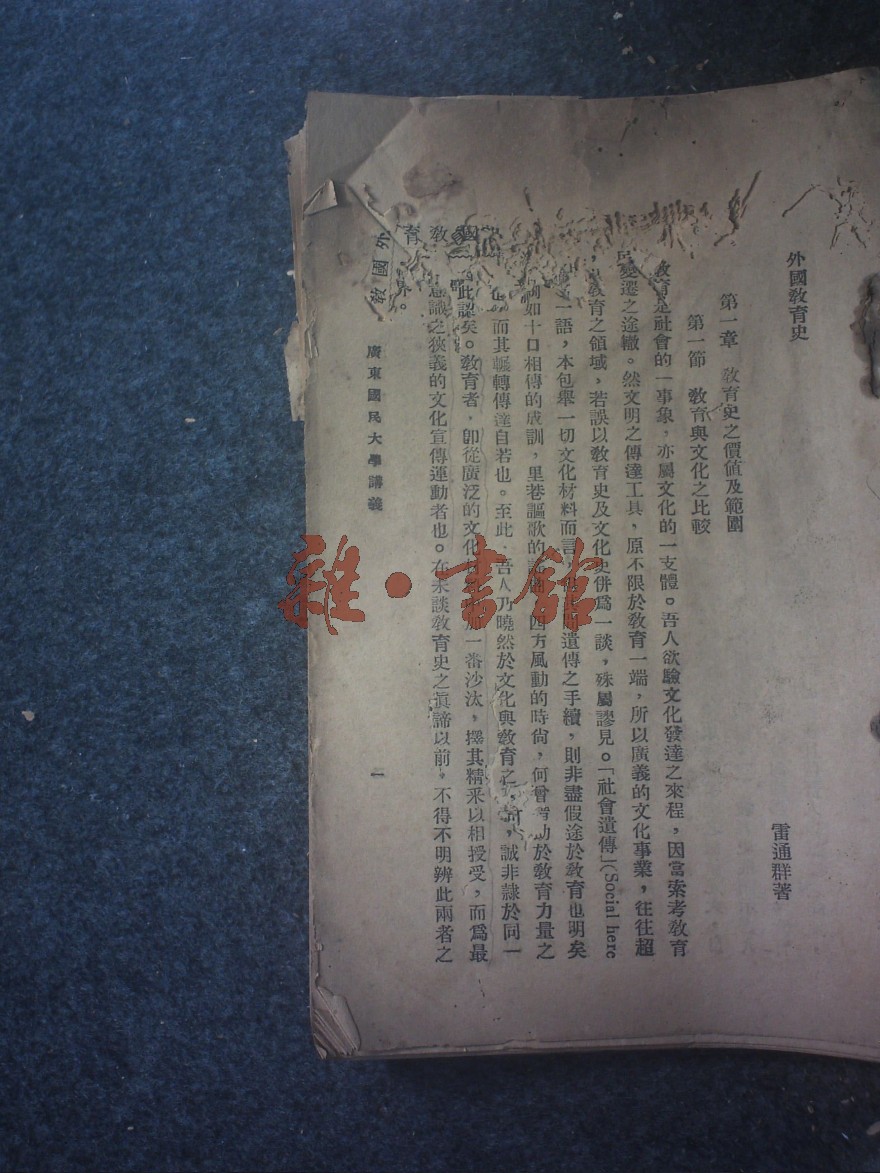 外國教育史
雷通群著
第一章 教育史之價値及範圍
第一節 教育與文化之比較
教育是社會的一事象，亦屬文化的一支體。吾人欲驗文化發達之來程，因當索考教育
變遷之途轍。然文明之傳達工具，原不限於教育一端，所以廣義的文化事業，往往超
教育之領域，若誤以教育史及文化史併爲一談，殊屬謬見。「社會遺傳」(Social here
一語，本包舉一切文化材料而言，遺傳之手續，則非盡假途於教育也明矣
如十口相傳的成訓，里巷謳歌的 四方風動的時尙，何曾 助於教育力量之
而其輾轉傳達自若也。至此，吾人乃曉然於文化與教育之 ，誠非隷於同一
此認矣。教育者，卽從廣泛的文化 一番沙汰，擇其精釆以相授受，而爲最
識之狹義的文化宣傳運動者也。在未談教育史之眞諦以前，不得不明辨此兩者之
界。
外國教育
廣東國民大學講義
一
雜·書館